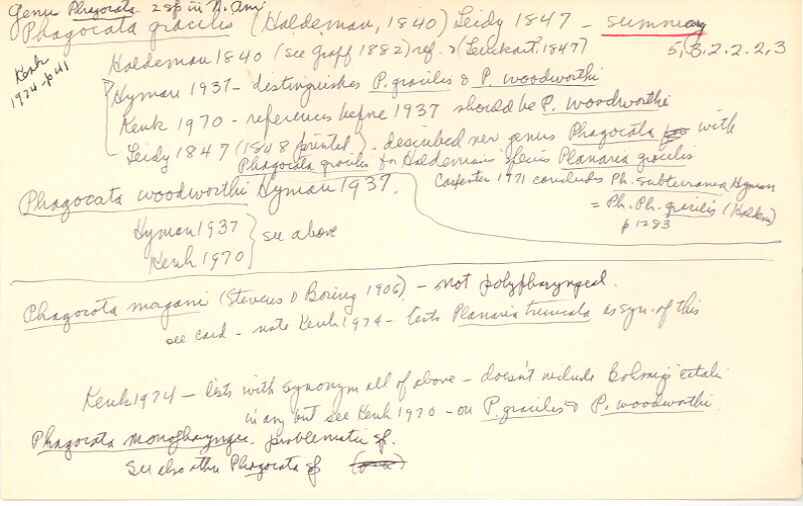 Genus Phagocata 2 sp in N. Am.
Phagocata gracilis (Haldeman, 1840) Leidy 1847 - summary
5, 3. 2. 2. 2, 3
Kenk 1974 - p 41
Haldeman 1840 (see Graff 1882) ref. → (Leuckart, 1847)
Hyman 1937 - distinguishes P. gracilis & P. woodworthi
Kenk 1970 - references before 1937 should be P. woodworthi
Leidy 1847 (1848 printed) - described new genus Phagocata with
Phagocata gracilis for Haldeman's species Planaria gracilis
Carpenter 1971 concludes Ph. subterranea Hyman
= Ph. Ph. gracilis (Haldem)
p 1283
Phagocata woodworthi Hyman 1937.
Hyman 1937
Kenk 1970
see above
Phagocata morgani (Stevens & Boring 1906) - not polypharyngeal.
see card - note Kenk 1974 - lists Planaria truncata as syn. of this
Kenk 1974 - lists with synonym all of above - doesn't include citation
in any but see Kenk 1970 - on P. gracilis & P. woodworthi.
Phagocata monopharyngea - problematic sp.
See also other Phagocata sp